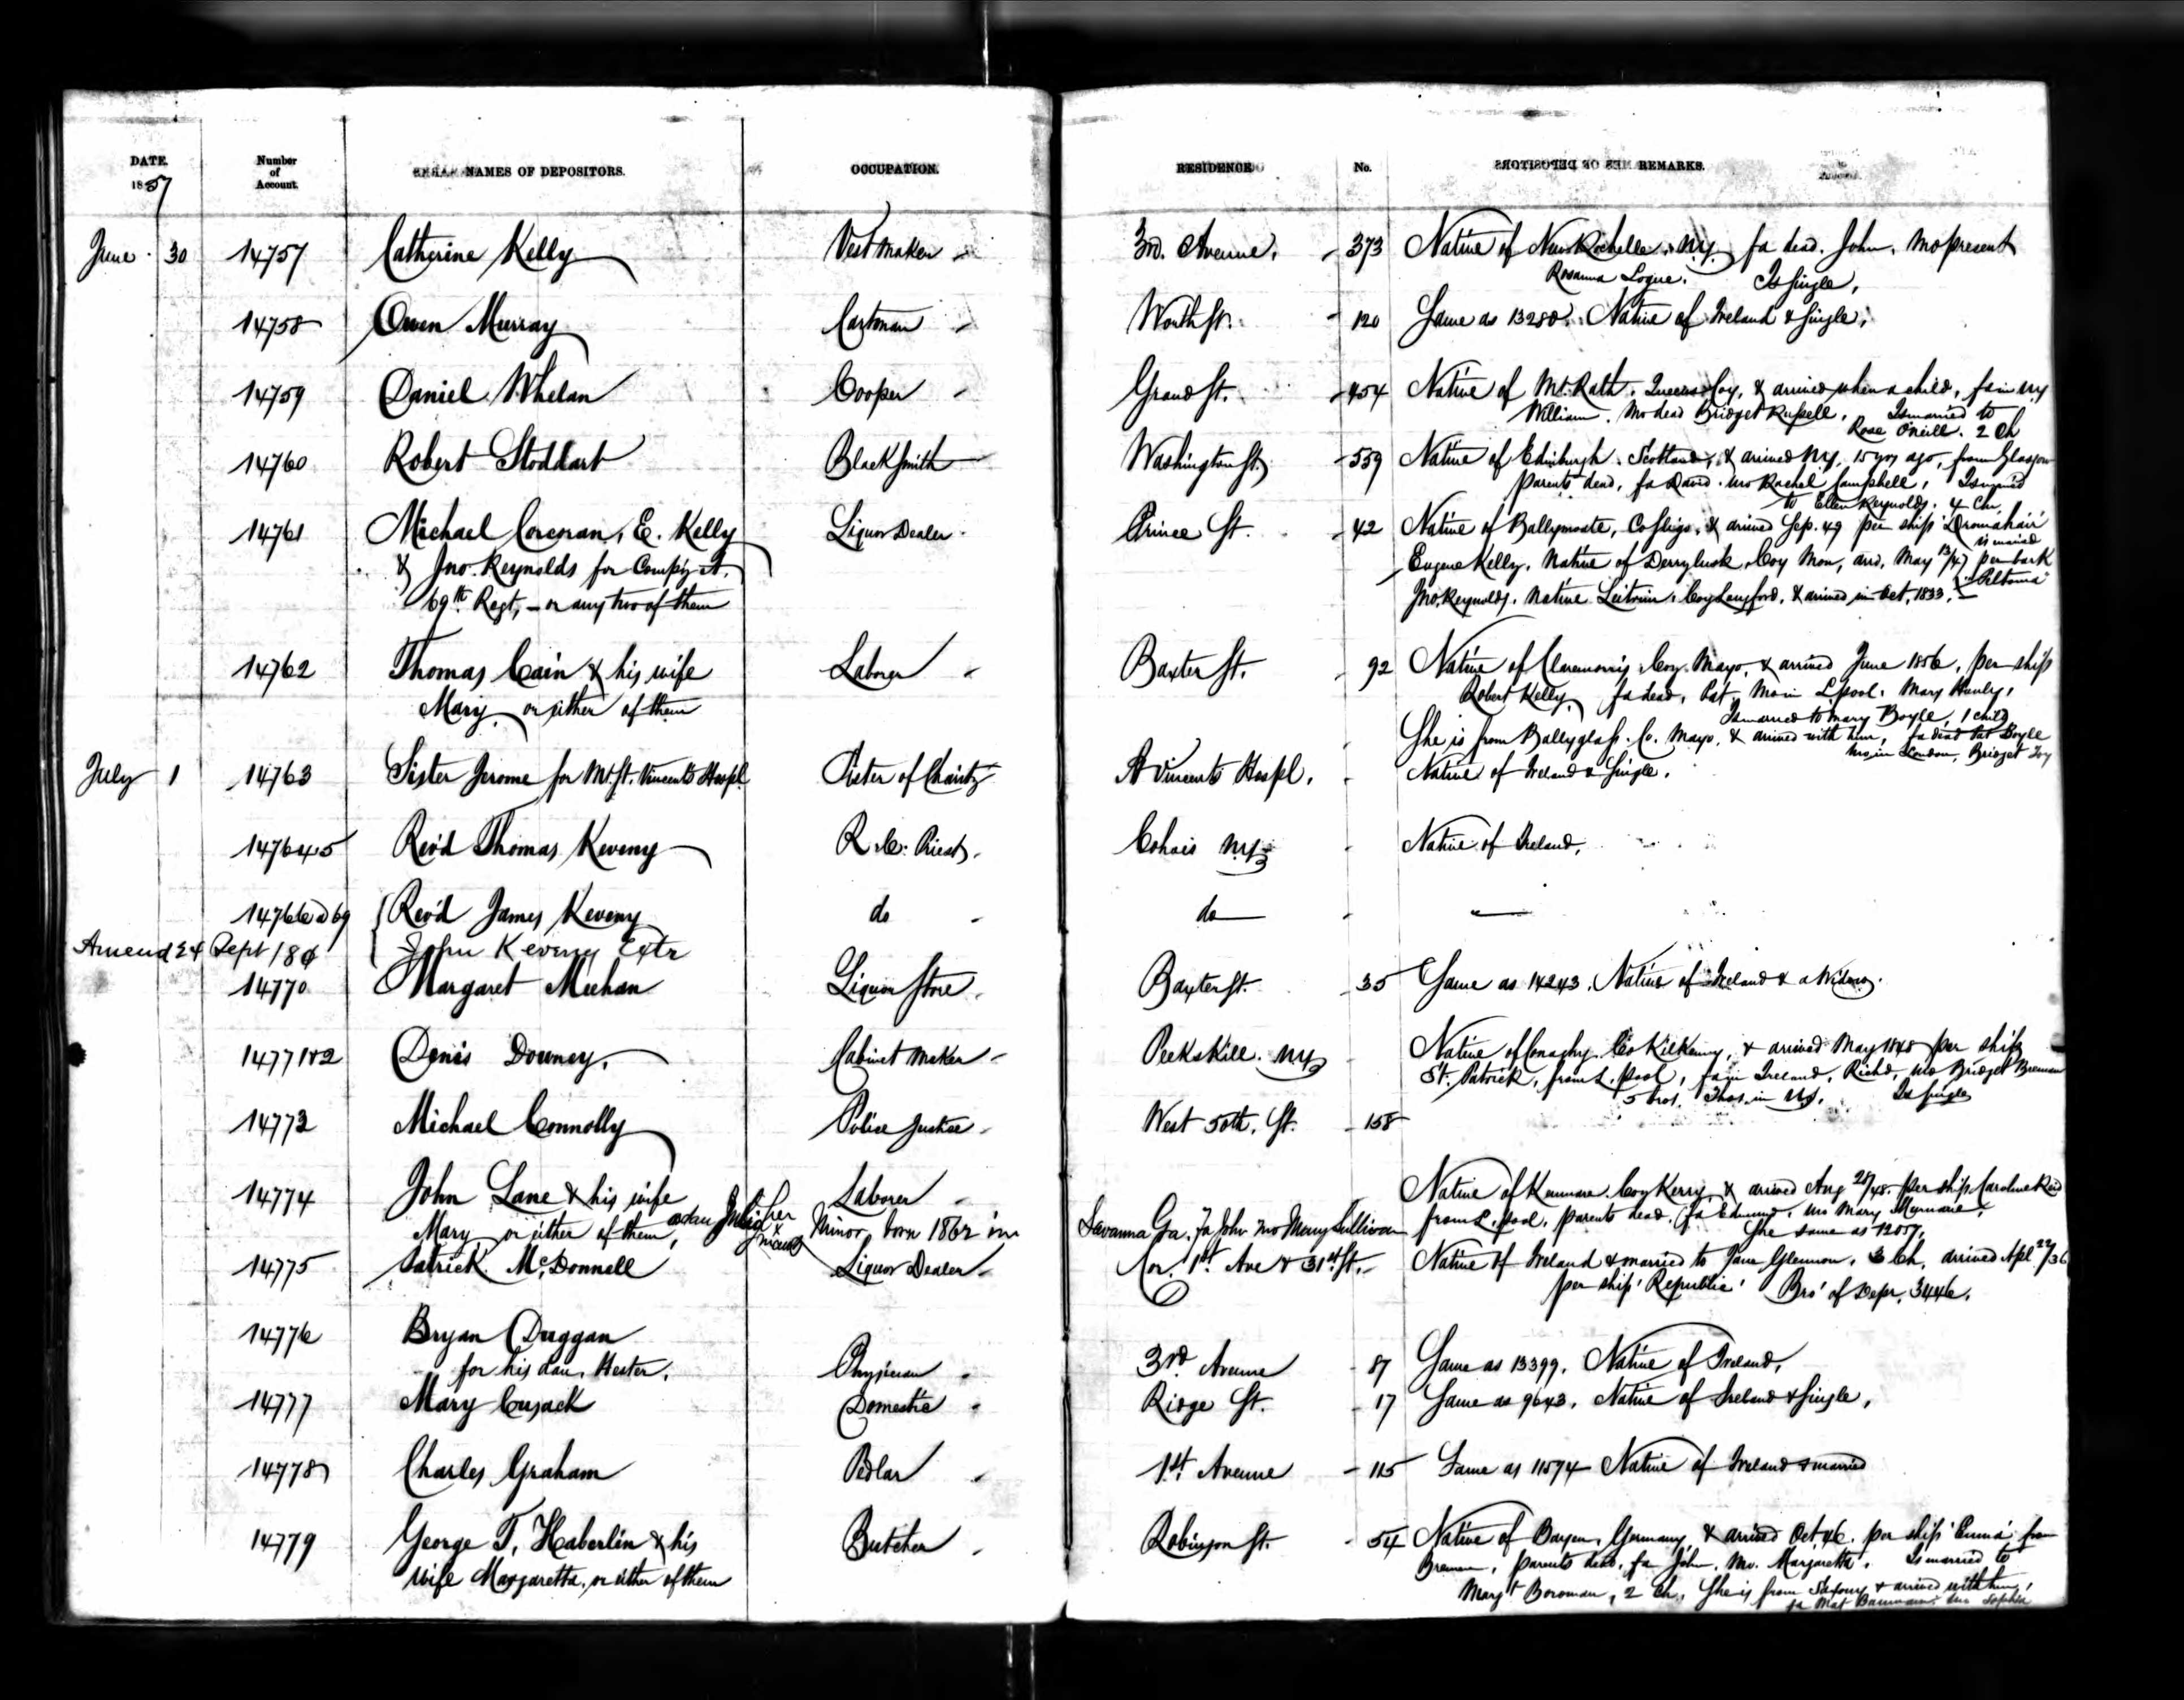 DATE. Number of Account. NAMES OF DEPOSITORS. OCCUPATION. RESIDENCE No. REMARKS.
1857
June 30 14757 Catherine Kelly Vest Maker 3rd. Avenue, 373 Native of New Rochelle, N.Y. fa dead. John, Mo present
Rosanna Logue. Is single,
14758 Owen Murray Cartman Worth St. 120 Same as 13280. Native of Ireland & Single,
14759 Daniel Whelan Cooper Grand St. 454 Native of Mt. Rath. Queens Coy, & arrived when a child, fa in N.Y.
William. Mo dead Bridget Russell, Is married to
Rose Oneill. 2 Ch
14760 Robert Stoddart Blacksmith Washington St. 559 Native of Edinburgh. Scotland, & arrived N.Y. 15 yrs ago, from Glasgow
parents dead, fa David. Mo Rachel Campbell, Is married
to Ellen Reynolds. 4 Ch,
14761 Michael Corcoran, E. Kelly Liquor Dealer Prince St. 42 Native of Ballymoate, Co Sligo, & arrived Sep. 49 per ship 'Dromahair'
is married
& Jno. Reynolds for Compy A. Eugene Kelly, Native of Derrylusk, Coy Mon, arrd, May 13/47 per bark
69th Regt, - or any two of them Jno. Reynolds. Native Leitrim, Coy Longford, & arrived in Oct, 1833,
14762 Thomas Cain & his wife Laborer Baxter St. 92 Native of Claremorris Coy. Mayo, & arrived June 1856, per ship
Mary or either of them Robert Kelly, fa dead, Pat, Mo in L'pool. Mary Hanly,
Is married to Mary Boyle, 1 child
She is from Ballyglass. Co. Mayo, & arrived with him, fa dead Pat Boyle
Mo in London, Bridget Joy
July 1 14763 Sister Jerome for Mt. St. Vincents Hospl. Sister of Charity St Vincents Hospl. Native of Ireland & Single.
14764&5 Rev'd Thomas Keveny R. C. Priest Cohois N.Y. Native of Ireland.
14766 @ 69 Rev'd James Keveny do do
Amend 24 Sept 18 John Keveny Extr
14770 Margaret Meehan Liquor Store Baxter St. 35 Same as 14243. Native of Ireland & a Widow.
14771&2 Denis Downey, Cabinet Maker Peekskill. N.Y. Native of Conaghy. Co Kilkenny, & arrived May 1848 per ship
St. Patrick, from L. pool, fa in Ireland, Richd, Mo Bridget Brennan
5 bros. Thos. in N.Y. Is single
14773 Michael Connolly Police Justice West 50th. St. 158
14774 John Lane & his wife Laborer Native of Kenmare. Coy Kerry, & arrived Aug 28/48. per ship Caroline Reid
Mary or either of them, Julia Minor born 1862 in Savanna Ga. Fa John Mo Mary Sullivan from L. pool, parents dead, fa Edmund, Mo Mary
She same as 12057.
14775 Patrick McDonnell Liquor Dealer Cor. 1st. Ave & 31st St. Native of Ireland & married to Jane Glennon. 3 Ch, arrived Apl 22/36
per ship 'Republic' Bro' of Depr. 3446.
14776 Bryan Duggan
for his dau. Hester. Physician 3rd. Avenue 87 Same as 13399. Native of Ireland.
14777 Mary Cusack Domestic Ridge St. 17 Same as 9643. Native of Ireland & Single,
14778 Charles Graham Pedlar 1st. Avenue 115 Same as 11574 Native of Ireland & married
14779 George T. Haberlin & his Butcher Robinson St. 54 Native of Germany, & arrived Oct, 46. per ship 'Emma' from
wife Margaretta, or either of them Bremen, parents dead, fa John, Mo. Margaretta. Is married to
Margt Boroman, 2 Ch, She is from Saxony & arrived with him,
fa Mat Mo Sophia